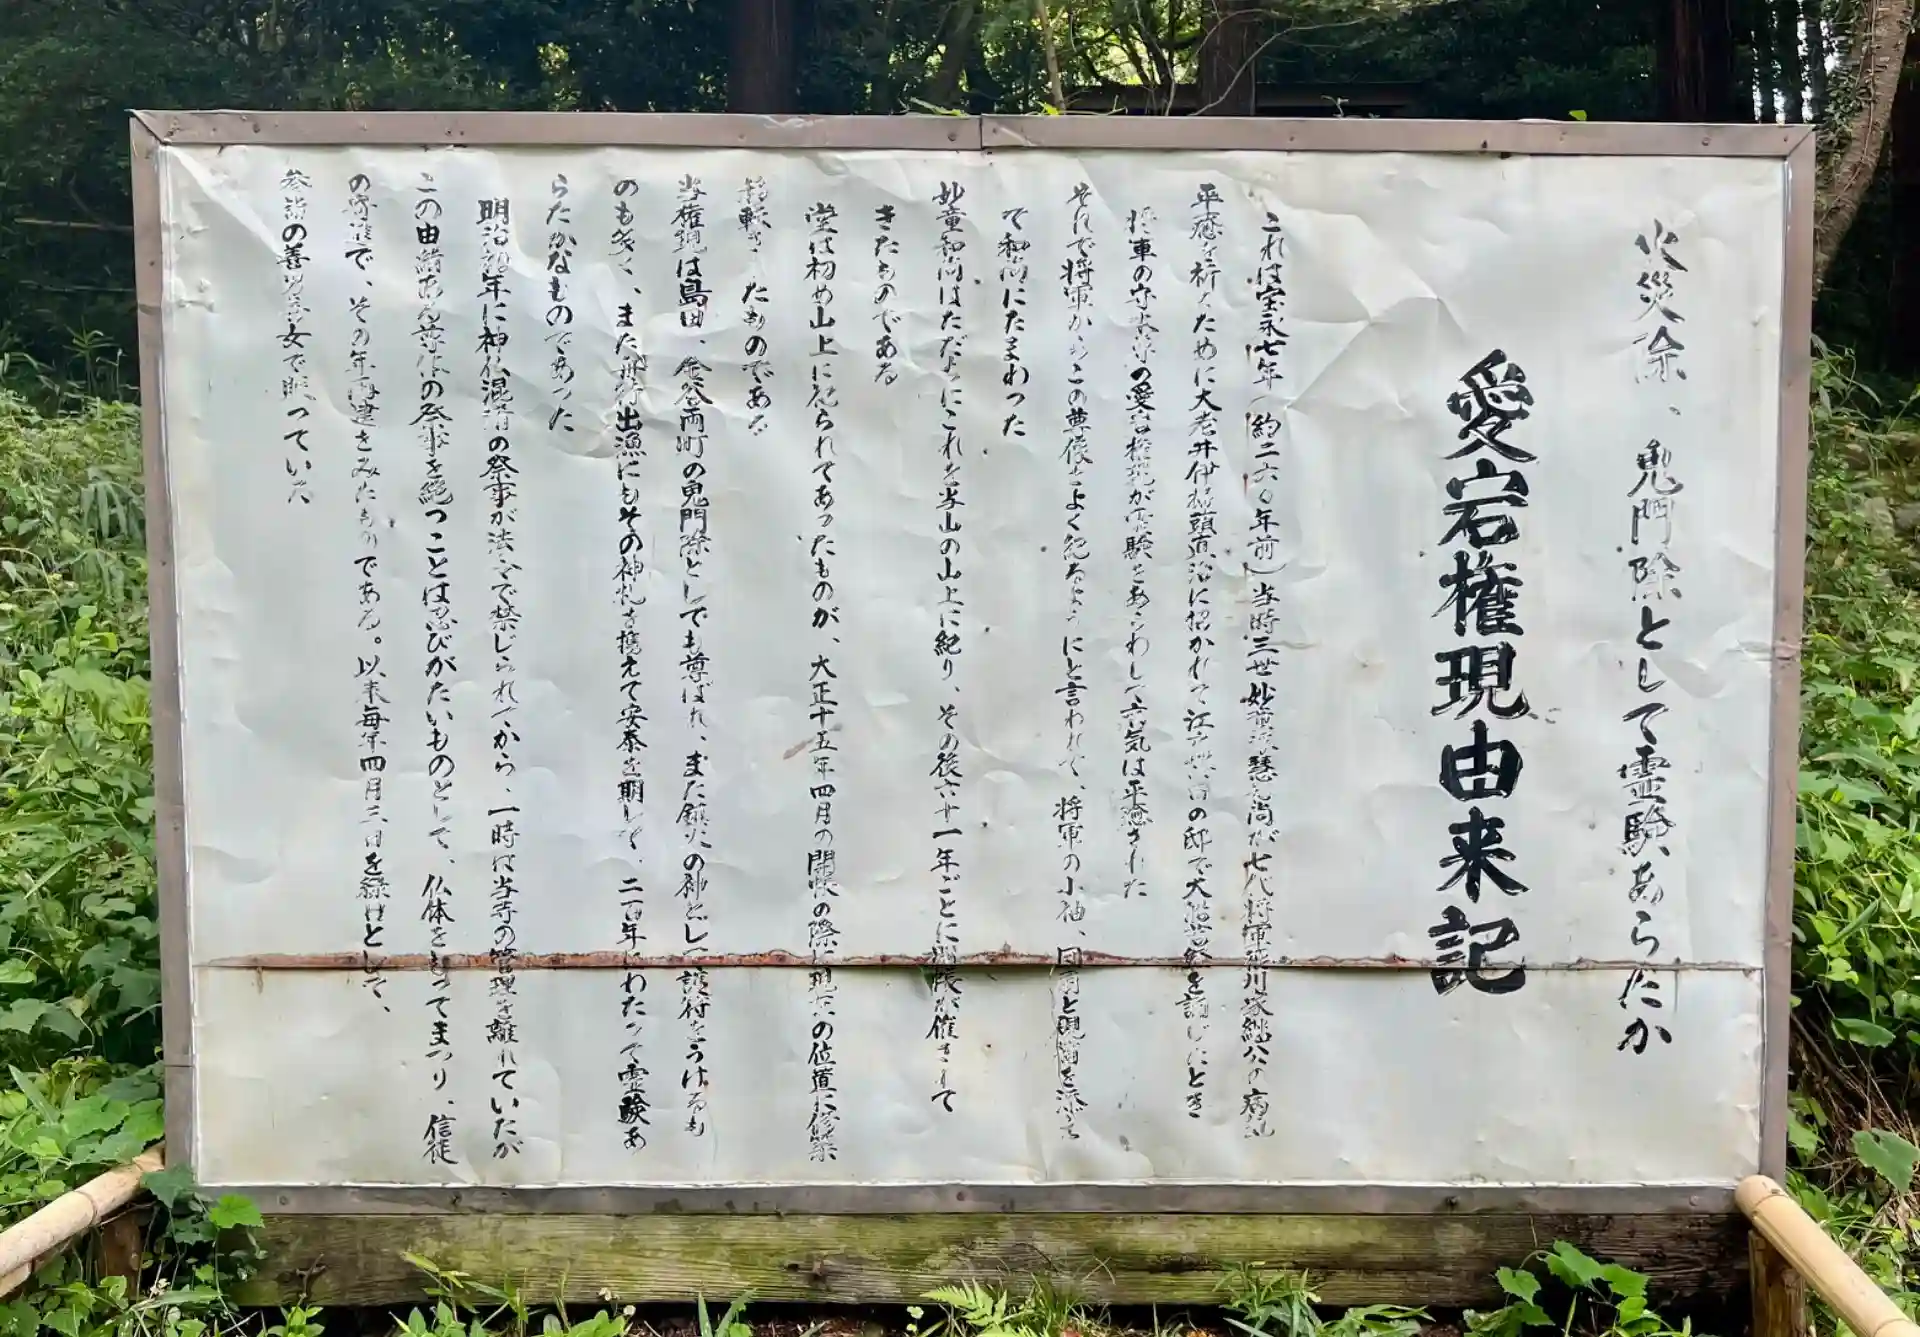 火災除、鬼門除として霊験あらたか
愛宕権現由来記
これは宝永七年(約二六〇年前)当時三世妙童 慧 尚が七代将軍 川家継公の病気
平癒を祈るために大老井伊掃部頭直治に招かれて江戸 の邸で大般若経を誦じたとき
将軍の守本尊の愛宕権現が霊験をあらわして病気は平癒された
それで将軍からこの尊像をよく祀るようにと言われて、将軍の小袖、 と を添えて
で和尚にたまわった
妙童和尚はただちにこれを当山の山上に祀り、その後六十一年ごとに開帳が催されて
きたものである
堂は初め山上に祀られてあったものが、大正十五年四月の開帳の際に現在の位置に修築
移転されたものである
当権現は島田、金谷両町の鬼門除としても尊ばれ、また鎮火の神として護符をうけるも
のも多く、また 出漁にもその神札を携えて安泰を期して、二百年にわたって霊験あ
らたかなものであった
明治 年に神仏混淆の祭事が法令で禁じられてから、一時は当寺の管理を離れていたが
この由緒ある尊体の祭事を絶つことは忍びがたいものとして、仏体をもってまつり、信徒
の寄進で、その年再建をみたものである。以来毎年四月三日を縁日として、
参詣の善男善女で賑っていた